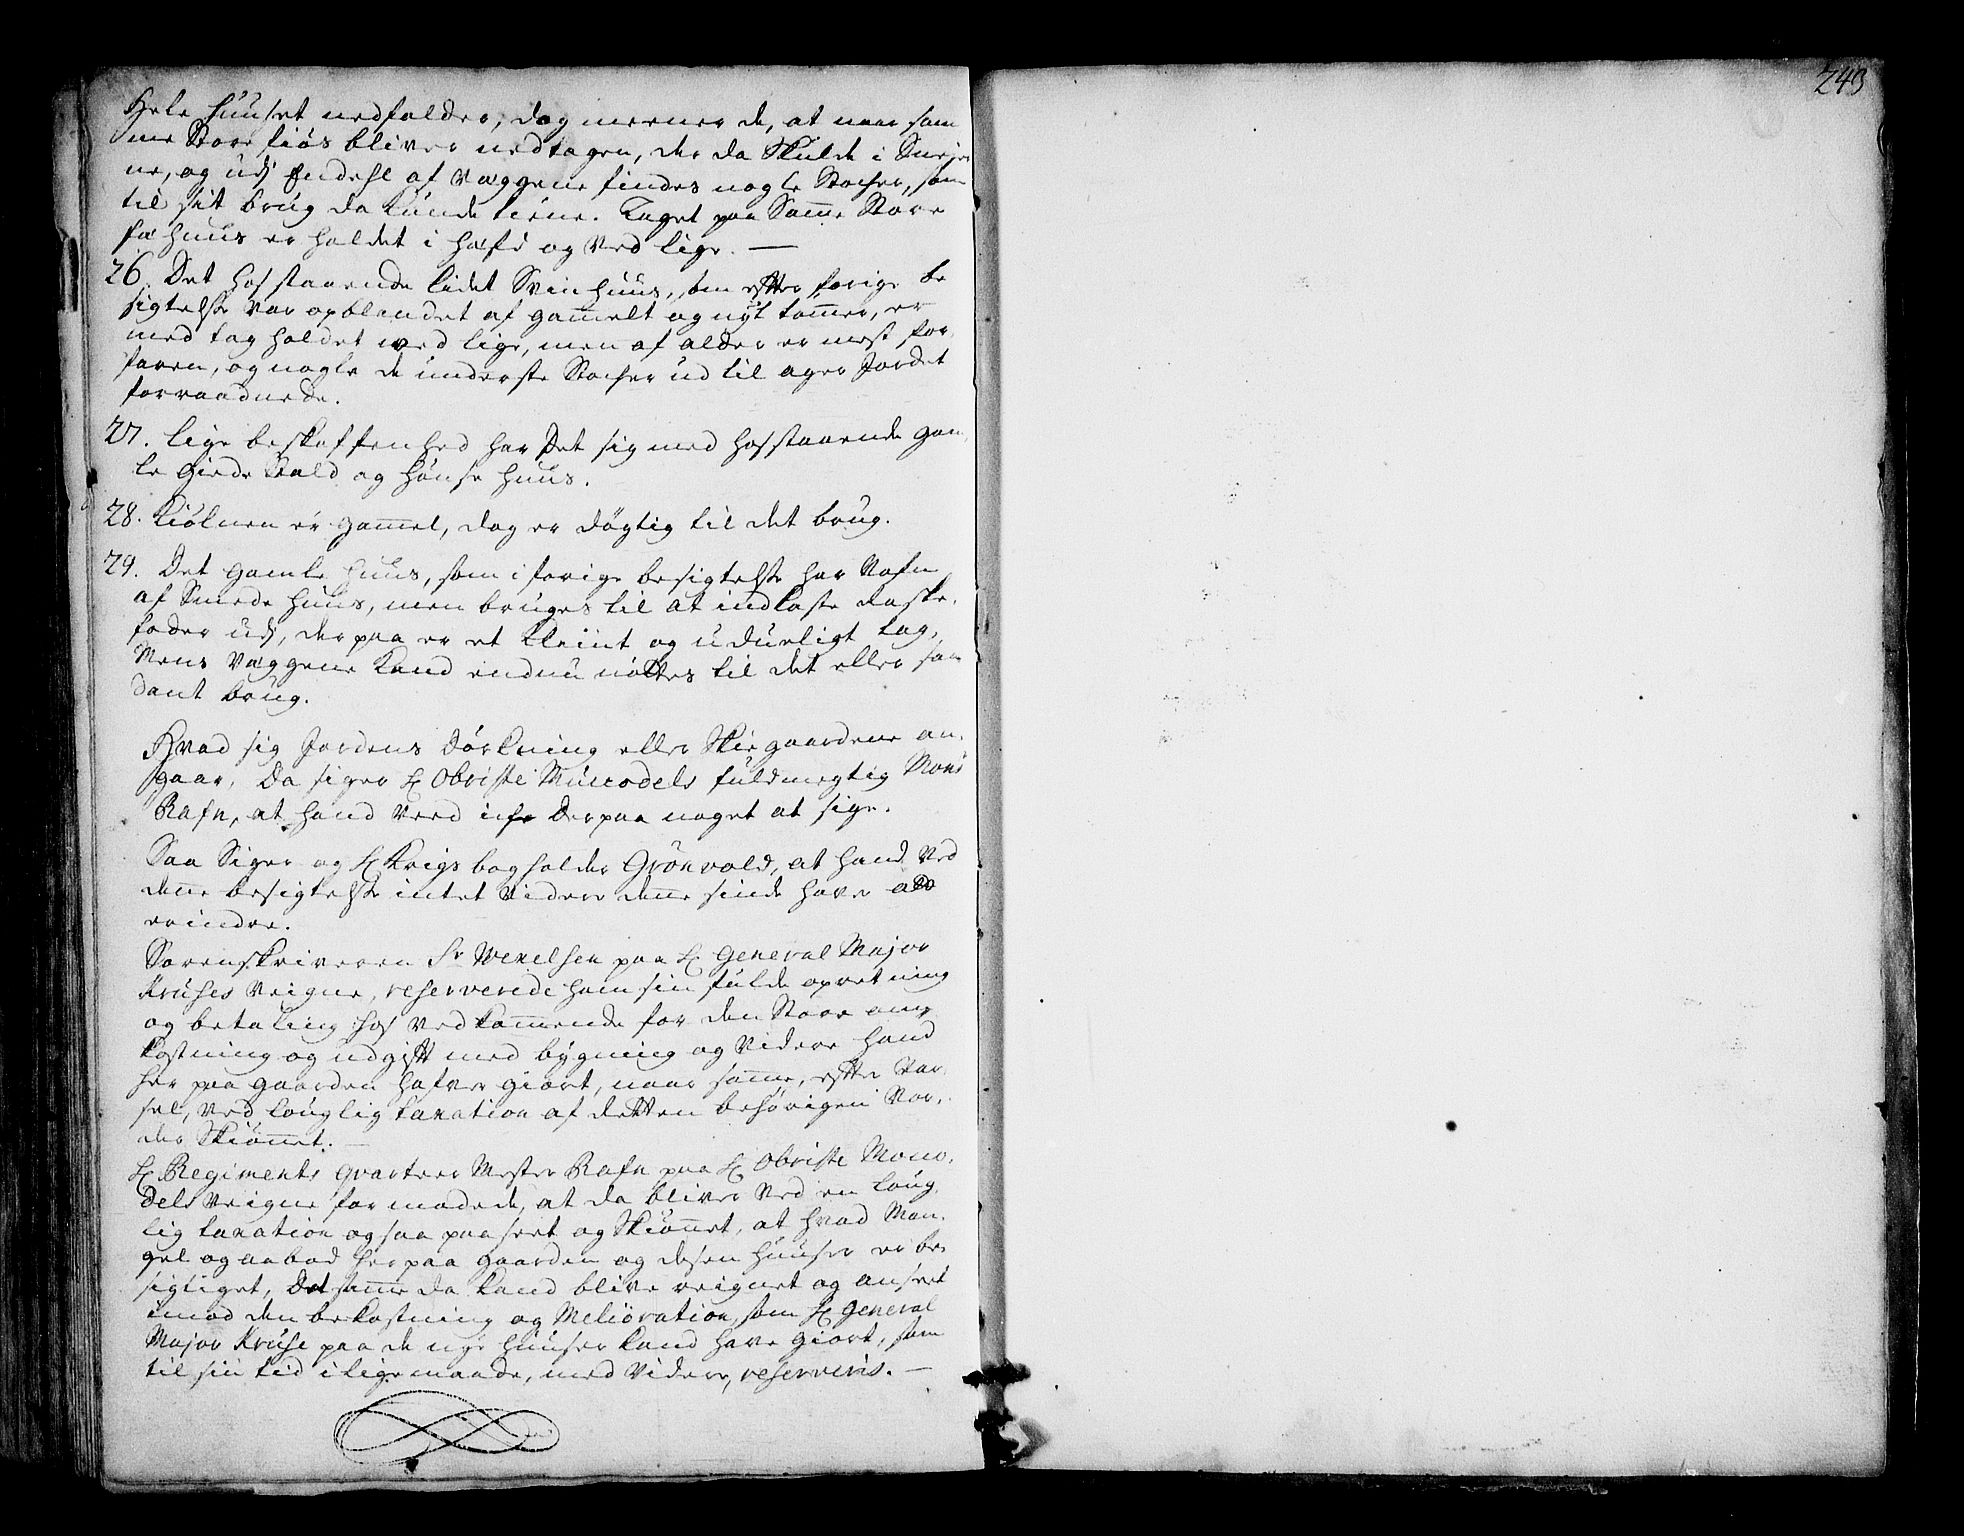 Hele huuset nedfalder, dog meener de, at naar sam
me Store fiøs bliver nedtagen, der da Skulde i
ne, og udj Endehl af Væggene findes nogle Stocher, som
til sit brug da kunde tiene. Taget paa Samme Store
fæhuus er holdet i hæfd og ved lige. —
26. Det hosstaaende lidet Sviinhuus, som efter forige be
sigtelse var opblendet af gammelt og nyt tømmer, er
med tag holdet ved lige, men af alder er mest for
faren, og nogle de underste Stocher ud til ager Jordet
forraadnede.
27. lige beskaffenhed har Det sig med hosstaaende gam
le giede Stald og hønse huus.
28. Kiølnen er gammel, dog er dögtig til det brug.
29. Det gamle huus, som i forige besigtelse har Nafn
af Smede huus, men bruges til at indkaste
foder udj, der paa er et kleint og udueligt tag,
Mens Væggene kand endnu nøttes til det eller saa
dant brug.
Hvad sig Jordens dörkning eller Skiegaardene an,
gaar, Da siger H Obriste Municodels fuldmegtig Mons
Rafn, at hand veed icke der paa noget at sige.
Saa Siger og H Krigs bogholder Grönvold, at hand Ved
denne besigtelse intet videre denne sinde haver at
erindre.
Sorenskriveren Sr Wexelsen paa H General Major
Kruses Veigne, reserverede ham sin fulde opretning
og betaling hos Vedkommende for den Store om
kostning og udgift med bygning og videre hand
her paa gaarden hafver giort, naar samme, efter Var,
sel, ved louglig taxation af detten behørigen vor,
der Skiønnet. —
H Regiments qvarteer Mester Rafn paa H Obriste
dels Veigne formodede, at da bliver ved en loug
lig taxation og saa paaseet og Skiønnet, at hvad Man,
gel og aabod her paa gaarden og desen huuser er be
sigtiget, Det samme da kand blive reignet og anseet
imod den bekostning og Meliøration, som H General
Major Kruse paa de nye huuser kand have giort, som
til sin tid i lige maade, med videre, reserveris. —
243